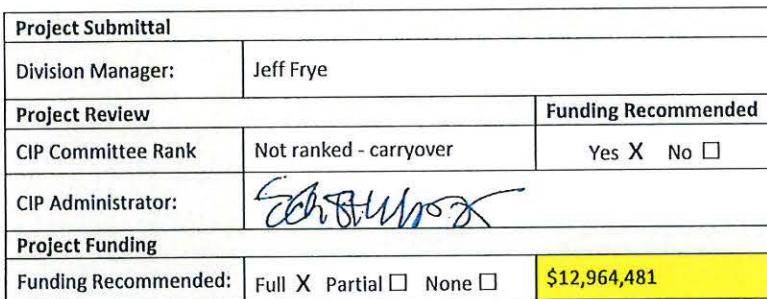 Project Submittal
Division Manager: Jeff Frye
Project Review Funding Recommended
CIP Committee Rank Not ranked - carryover Yes X No ☐
CIP Administrator:
Project Funding
Funding Recommended: Full X Partial ☐ None ☐ $12,964,481